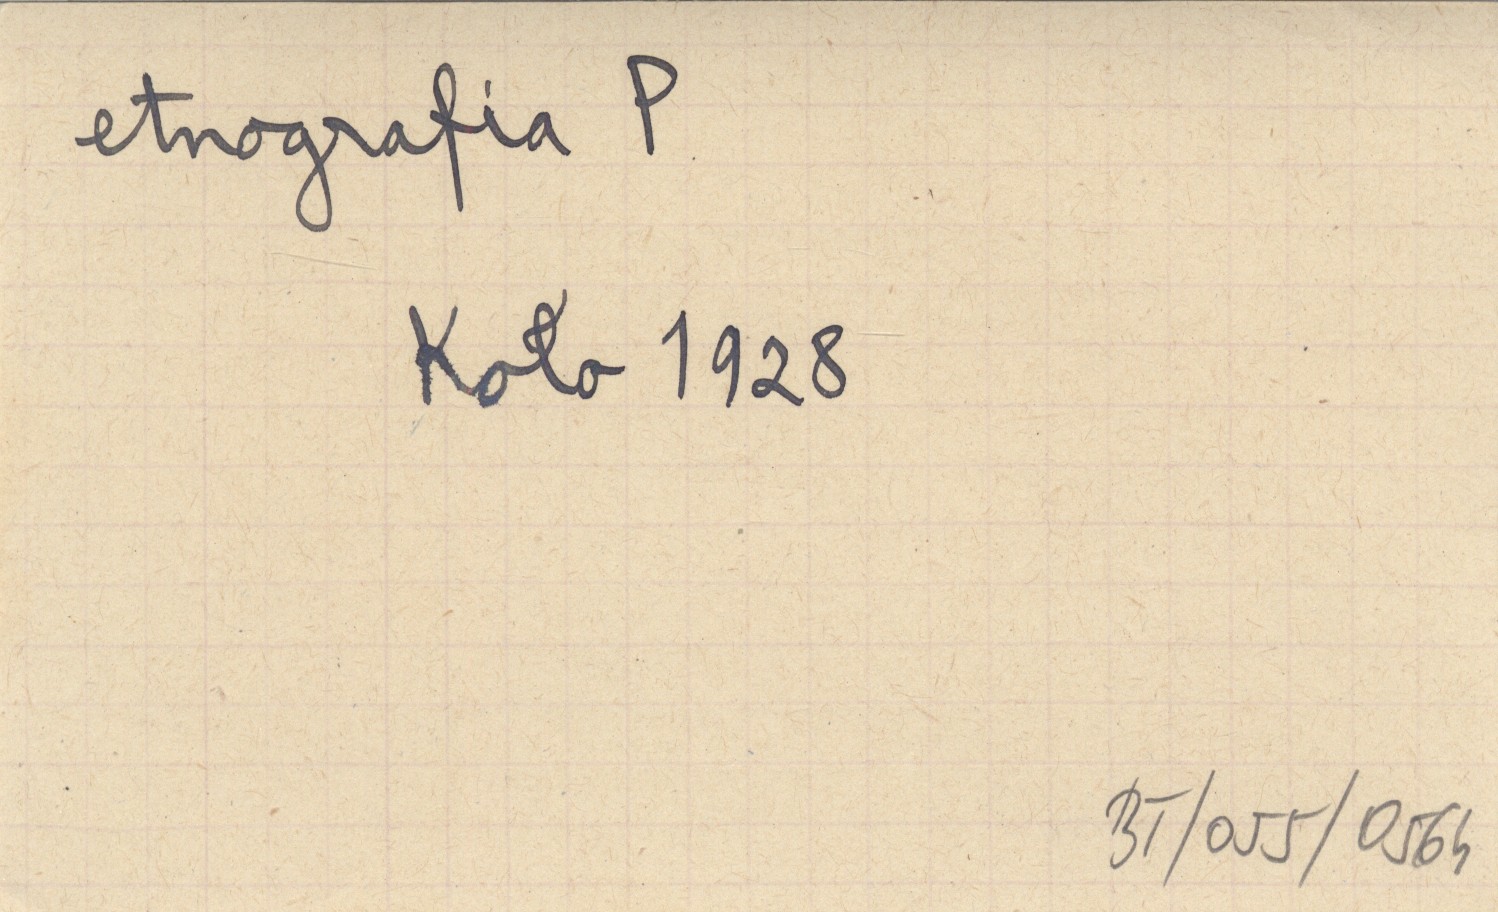 etnografia P
Koło 1928
BT/055/0564